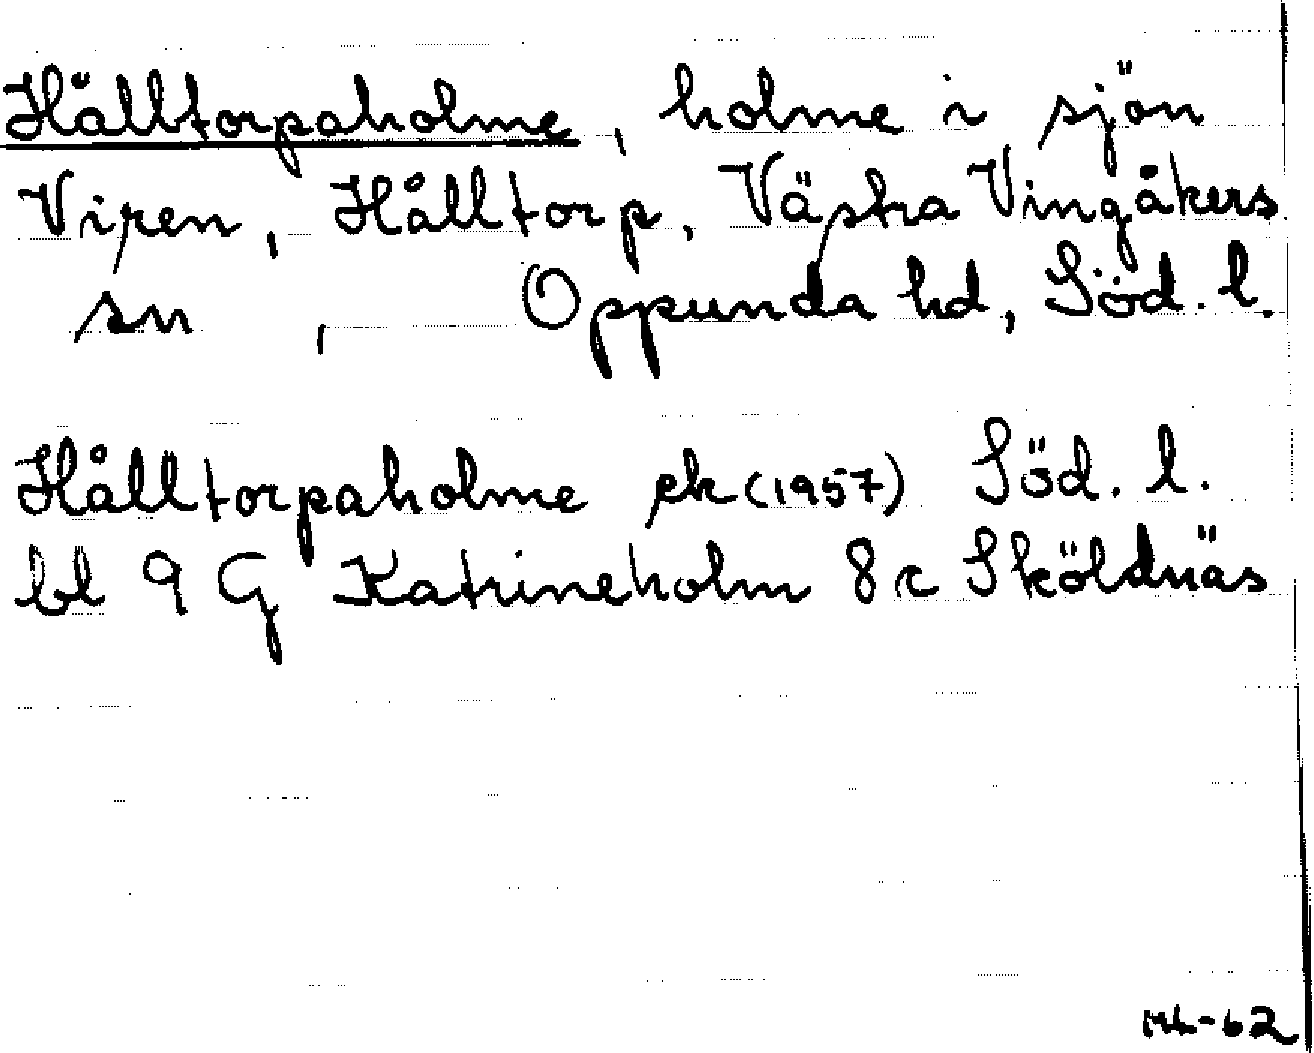 Hålltorpaholme, holme i sjön
Viren, Hålltorp, Västra Vingåkers
sn , Oppunda hd, Söd. l.
Hålltorpaholme ek (1957) Söd. l.
bl 9 G Katrineholm 8 c Sköldnäs
ML-62